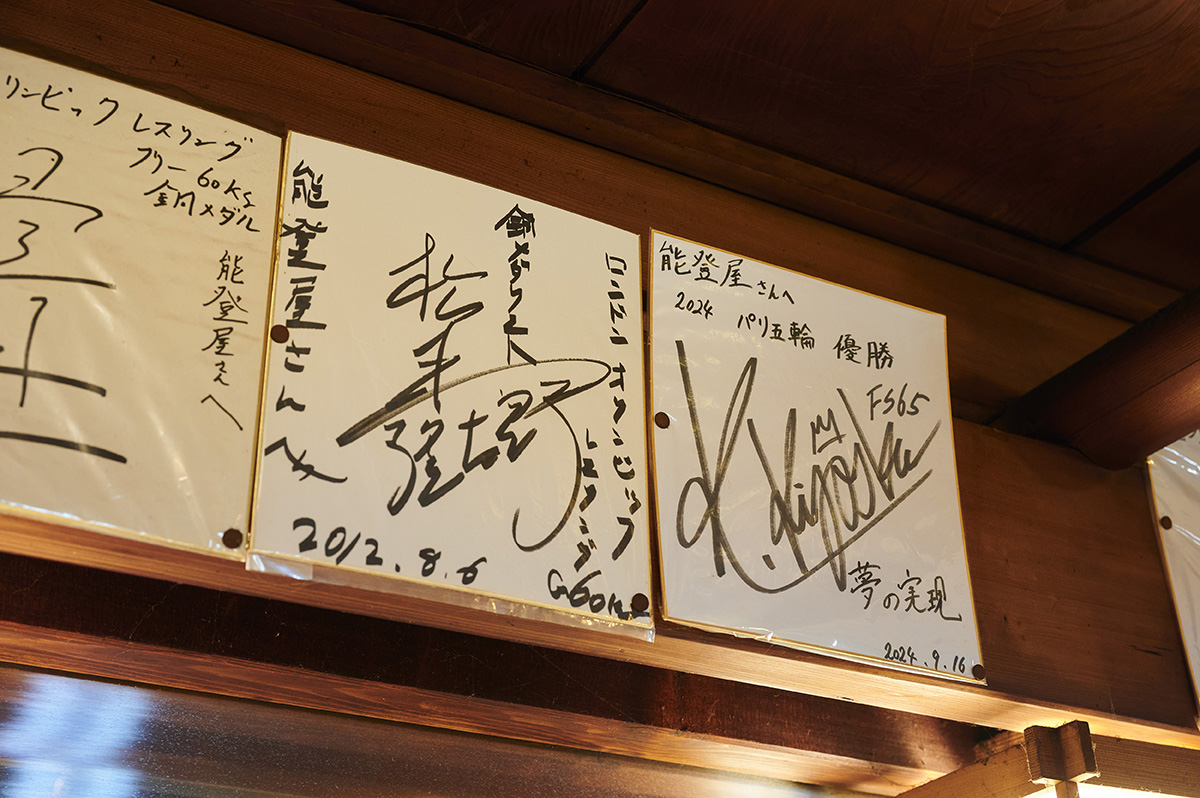 リンピック レスリング
フリー 60Kg
銅メダル
能登屋さんへ
ロンドンオリンピック
レスリング
G60kg
銅メダリスト
松本隆太郎
能登屋さんへ
2012.8.6
能登屋さんへ
2024 パリ五輪 優勝
FS65
K.Kiyooka
夢の実現
2024.9.16